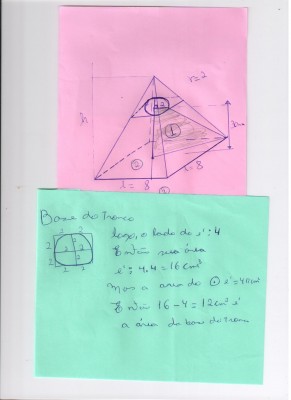 r=2
h
1
2
l = 8
8
Base do tronco
2 2
2 2
2 2
logo, o lado do é: 4
Então sua área
é: 4.4 = 16 cm²
Mas a área do é = 4
Então 16-4 = 12 cm² é
a área da base do tronco